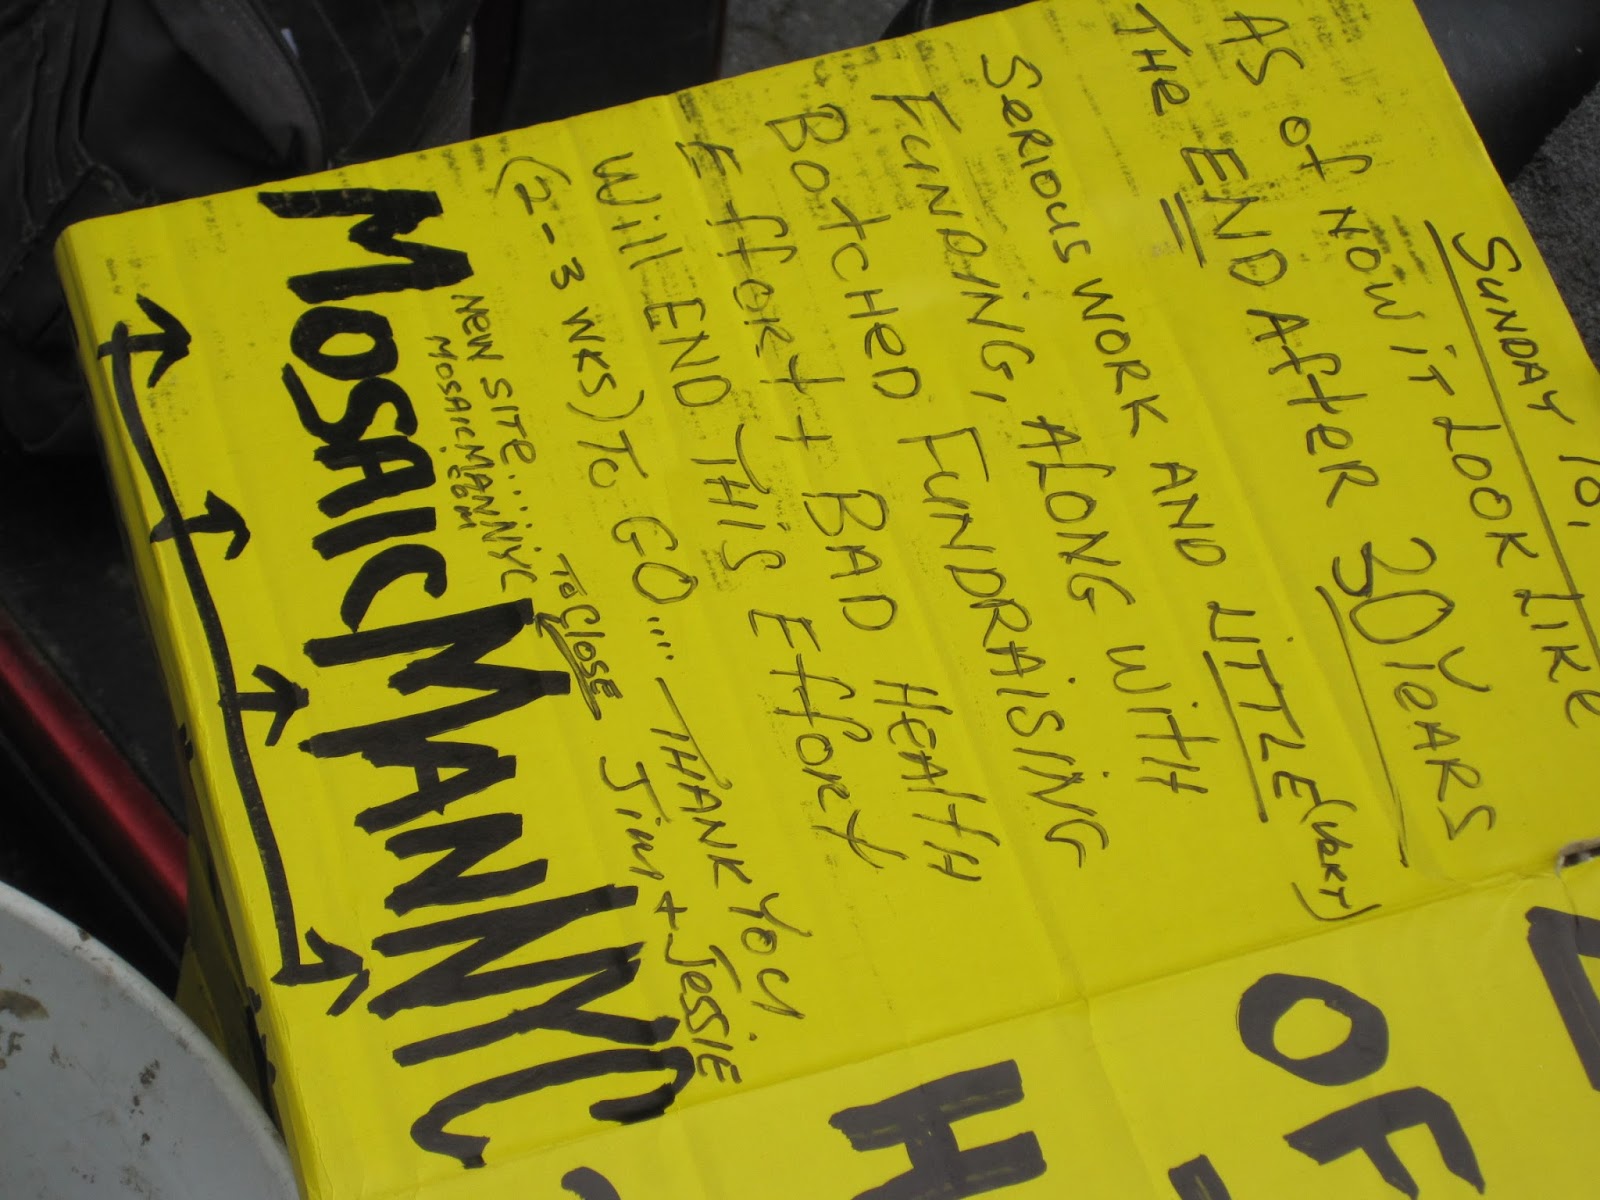 SUNDAY 10,
AS of NOW iT LOOK LIKE
THE END AfteR 30 YeARS
SeRiOus WORK AND LITTLE
FUNDING, ALONG WITH
BOtCHED FUNDRAISING
Effort + BAD HEALTH
Will END THiS Effort
(2-3 WKS) To GO.... THANK YOU
To Close JiM + JeSSiE
NEW SITE...
MOSAICMANNYC
.COM
MOSAICMANNYC
OF
H